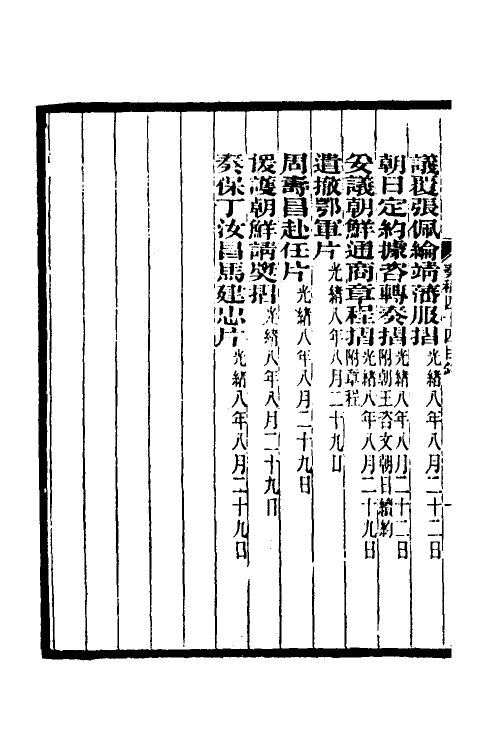 議覆張佩綸靖藩服摺 光緒八年八月二十二日
朝日定約據咨轉奏摺 光緒八年八月二十二日 附朝王咨文朝日續約
妥議朝鮮通商章程摺 光緒八年八月二十九日 附章程
遣撤鄂軍片 光緒八年八月二十九日
周壽昌赴任片 光緒八年八月二十九日
援護朝鮮請獎摺 光緒八年八月二十九日
奏保丁汝昌馬建忠片 光緒八年八月二十九日